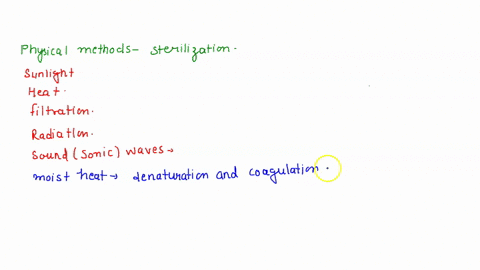 Physical methods- sterilization.
Sunlight
Heat.
filtration.
Radiation.
Sound (sonic) waves →
moist heat → denaturation and coagulation.